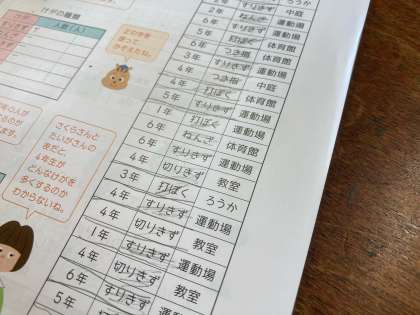 けがの種類
人数(人)
正の字を
使って
かぞえたね。
さくらさんと
たいがさんの
表だと、
4年生が
どんなけがを
多くするのか
わからないね。
すりきず ろうか
2年 ねんざ 中庭
6年 すりきず 運動場
5年 打ぼく 体育館
6年 つき指 運動場
すりきず 体育館
4年 つき指 中庭
打ぼく 体育館
5年 すりきず 運動場
1年 打ぼく 体育館
6年 ねんざ 運動場
6年 すりきず 体育館
4年 切りきず 教室
3年 打ぼく ろうか
4年 すりきず 運動場
4年 切りきず 教室
1年 すりきず 運動場
4年 切りきず 教室
6年 すりきず 運動場
5年